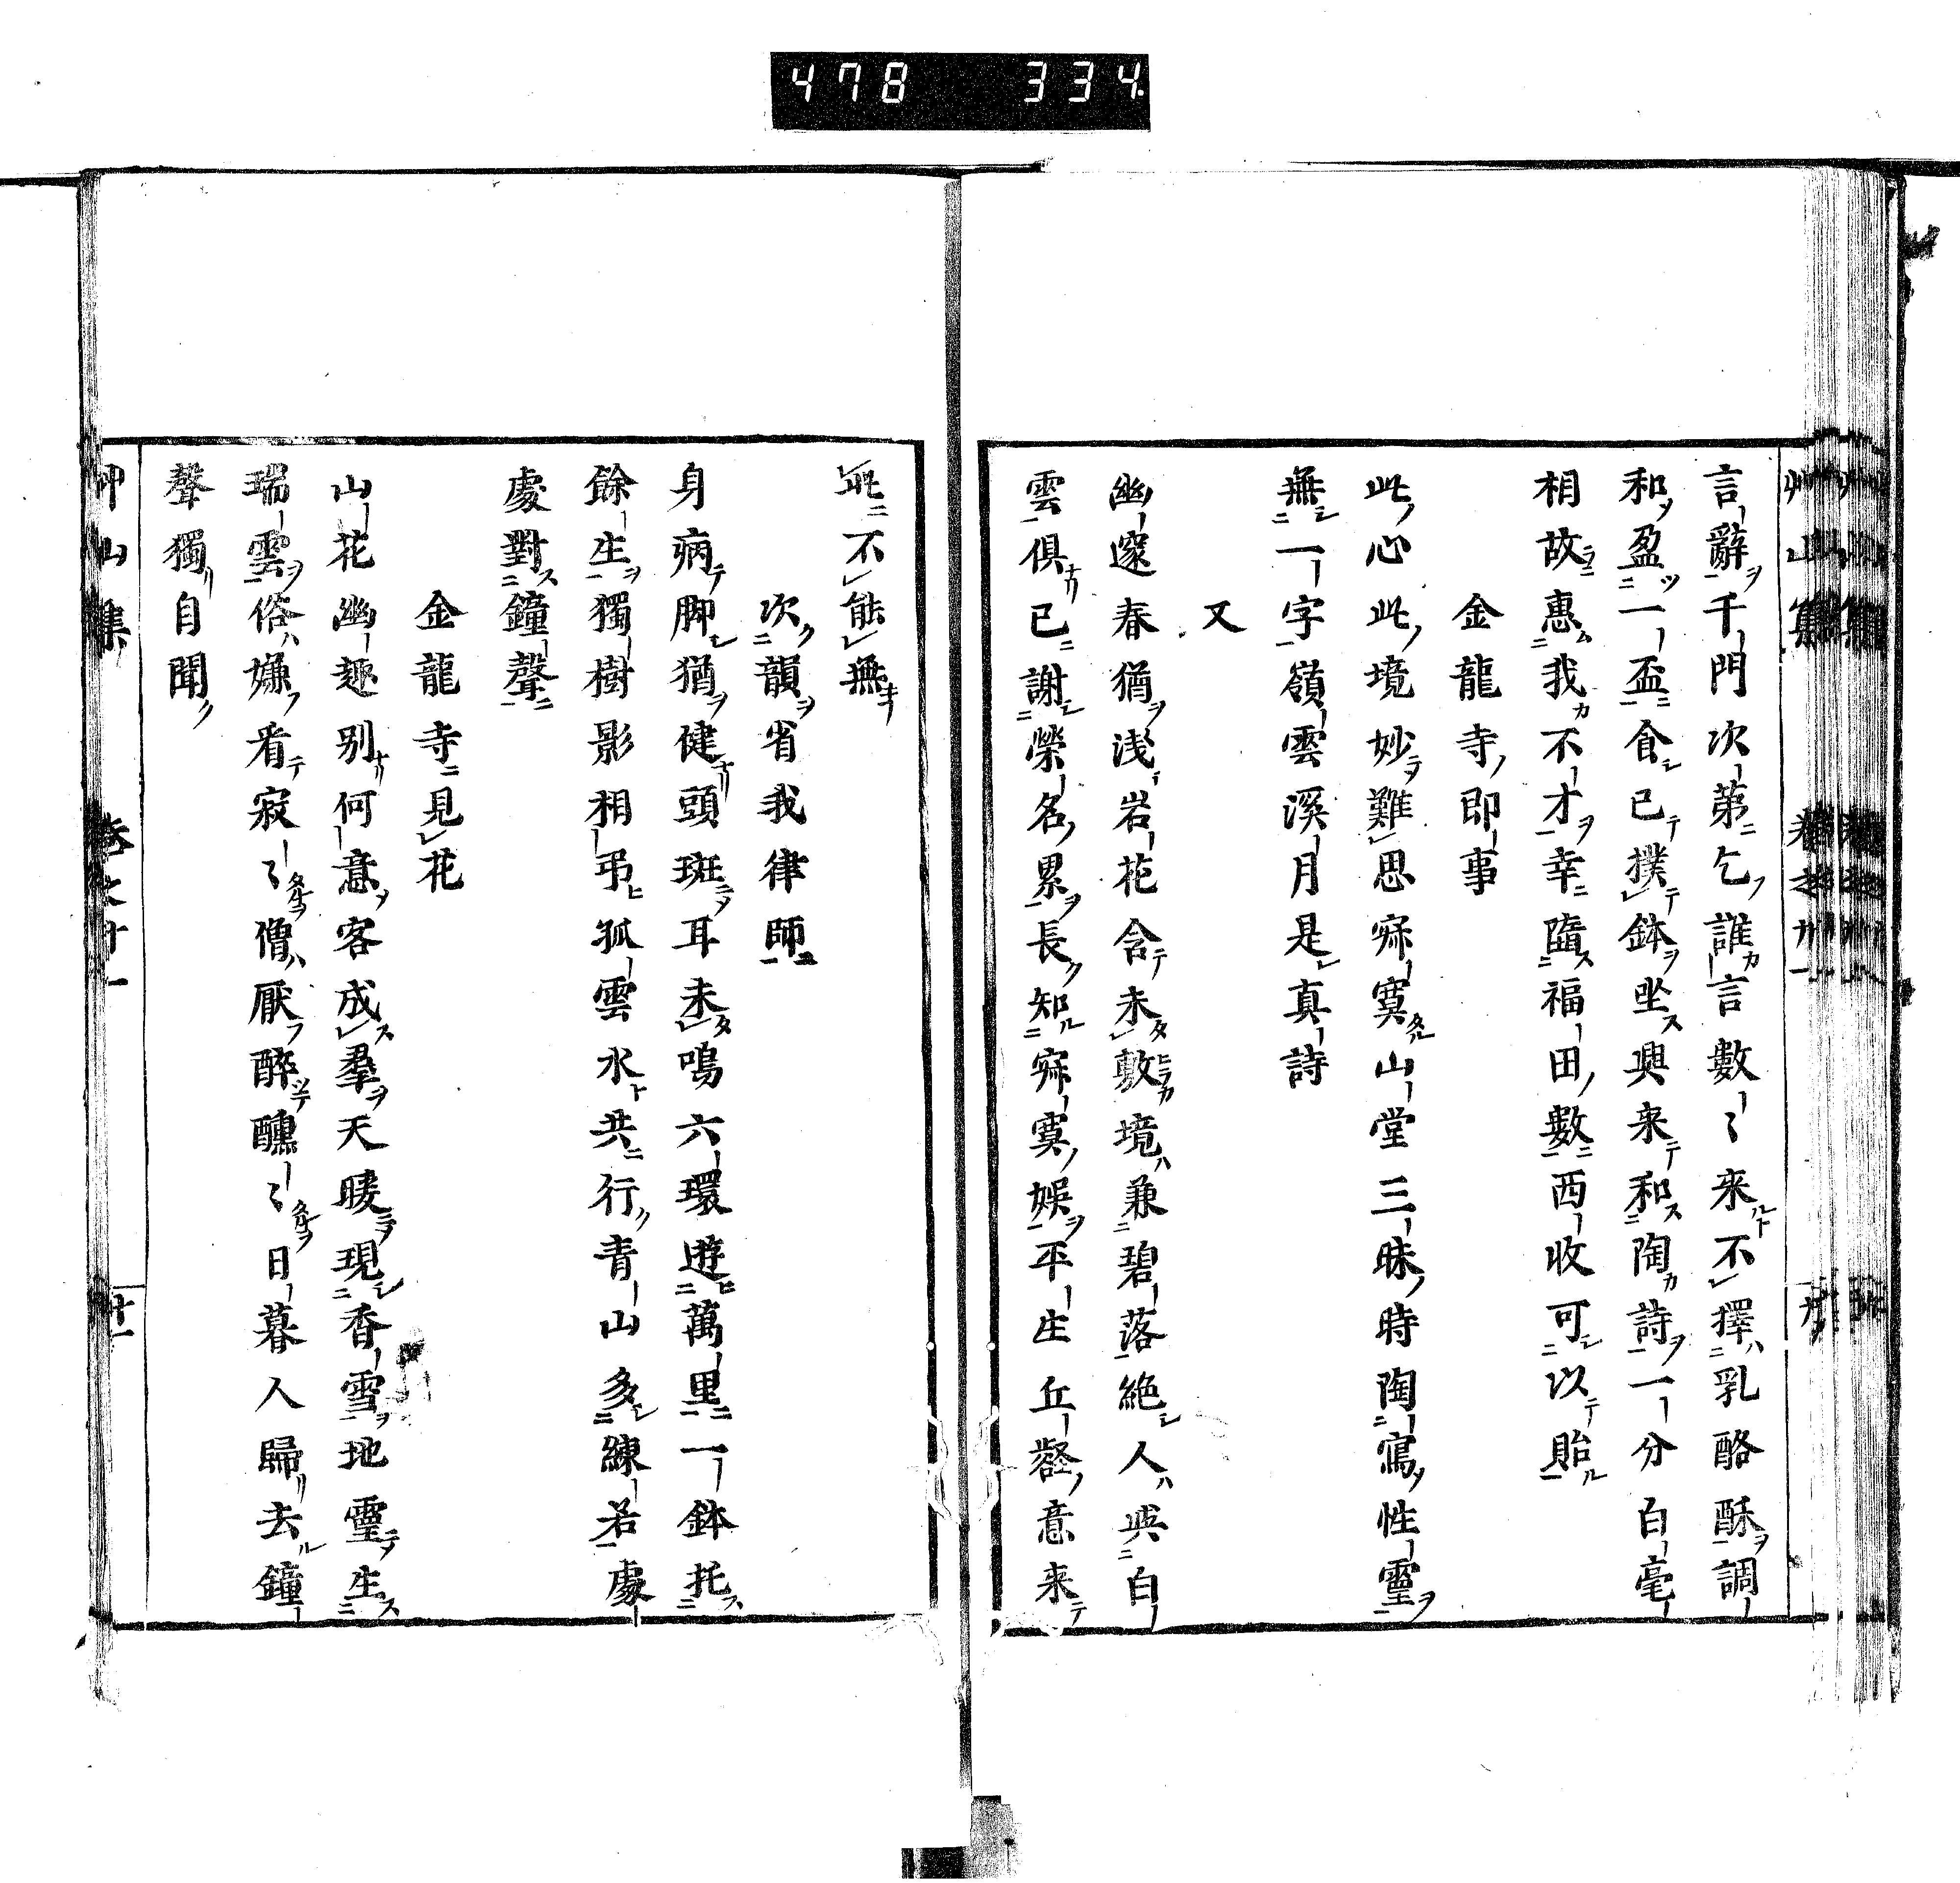 478 334
言辭千門次第乞誰言數〻来不擇乳酪酥調
和盈一盃食已撲鉢坐興来和陶詩一分白毫
相故惠我不才幸隨福田數西收可以貽
金龍寺即事
此心此境妙難思寂寞山堂三昧時陶寫性靈
無一字嶺雲溪月是真詩
又
幽邃春猶浅岩花含未敷境兼碧落絶人與白
雲俱已謝榮名累長知寂寞娯平生丘壑意来
此不能無
次韻省我律師
身病脚猶健頭斑耳未鳴六環遊萬里一鉢托
餘生獨樹影相弔孤雲水共行青山多練若處
處對鐘聲
金龍寺見花
山花幽趣别何意客成羣天暖現香雪地靈生
瑞雲俗嫌看寂〻僧厭醉醺〻日暮人歸去鐘
聲獨自聞
艸山集 卷之廿一 廿一